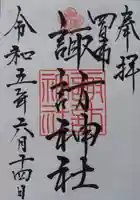 奉拝
四日市
諏訪神社
令和五年六月十四日